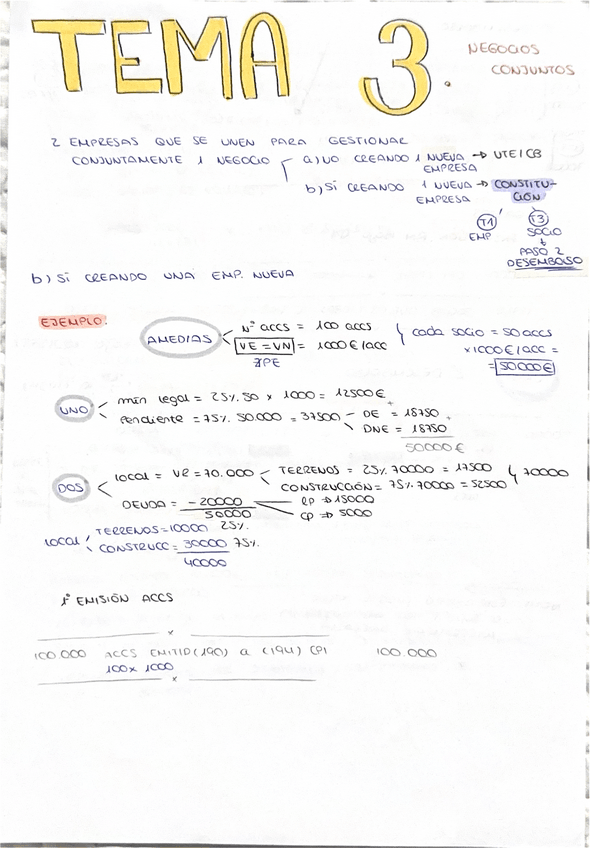 TEMA 3.
NEGOCIOS
CONJUNTOS
2 EMPRESAS QUE SE UNEN PARA GESTIONAR
CONJUNTAMENTE 1 NEGOCIO
a) NO CREANDO 1 NUEVA EMPRESA → UTE/CB
b) SI CREANDO 1 NUEVA EMPRESA → CONSTITU-
CIÓN
T1
EMP
T3
SOCIO
PASO 2
DESEMBOLSO
b) SI CREANDO UNA EMP. NUEVA
EJEMPLO:
AMEDIAS
Nº ACCS = 100 ACCS
VE = VN = 1000€/ACC
∄PE
cada socio = 50 ACCS
x1000€/ACC =
= 50000€
UNO
mín legal = 25% 50 x 1000 = 12500€
Pendiente = 75% 50.000 = 37500
DE = 18750
DNE = 18750
50000€
DOS
local = VR = 70.000
TERRENOS = 25% 70000 = 17500
CONSTRUCCIÓN = 75% 70000 = 52500
70000
DEUDA = -20000
50000
LP ⇒ 15000
CP ⇒ 5000
local
TERRENOS = 10000 25%
CONSTRUCC = 30000 75%
40000
1º EMISIÓN ACCS
x
100.000 ACCS EMITID (190) a (194) CPI 100.000
100 x 1000
x